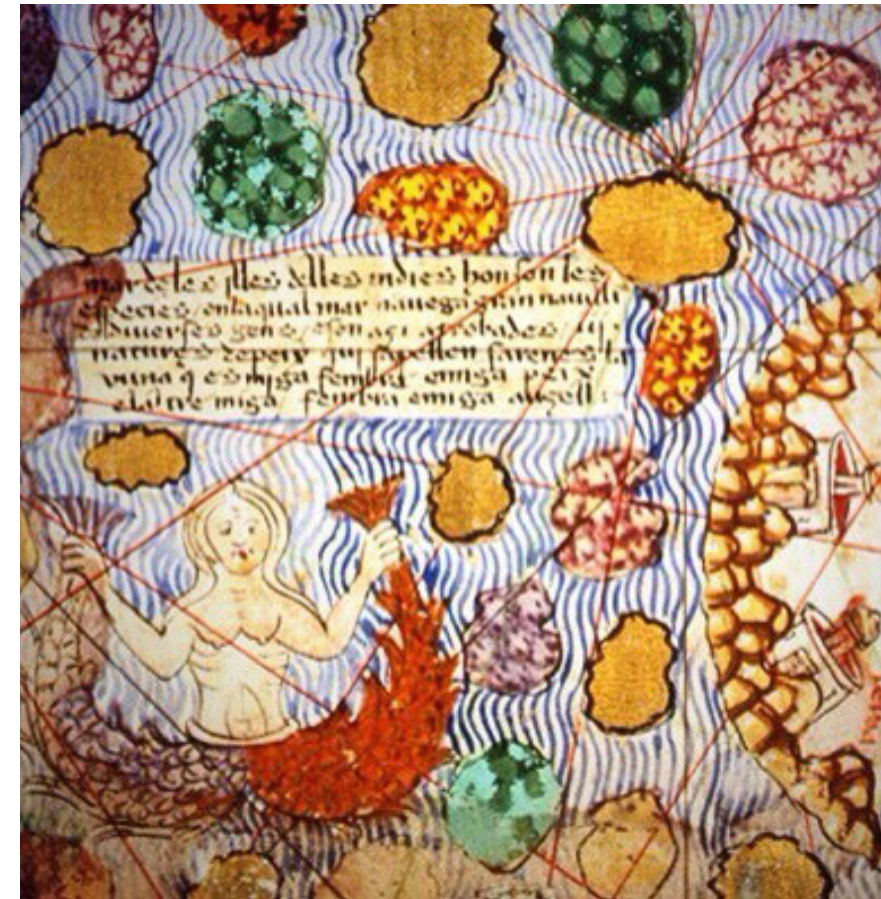 mar deles illes delles indies hon son les
especies / en la qual mar nauega gran nauili
diuerses gens / e son açi atrobades / iij ·
natures de peix qui sapellen sarenes la
vuna q es miga fembra emiga peix
elaltre miga fembra emiga auzell :